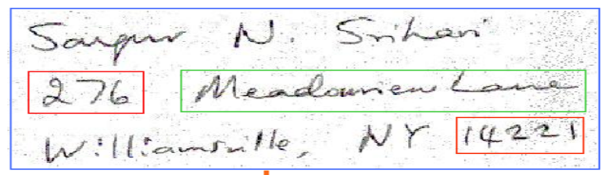 Sargur N. Srihari
276 Meadowview Lane
Williamsville, NY 14221